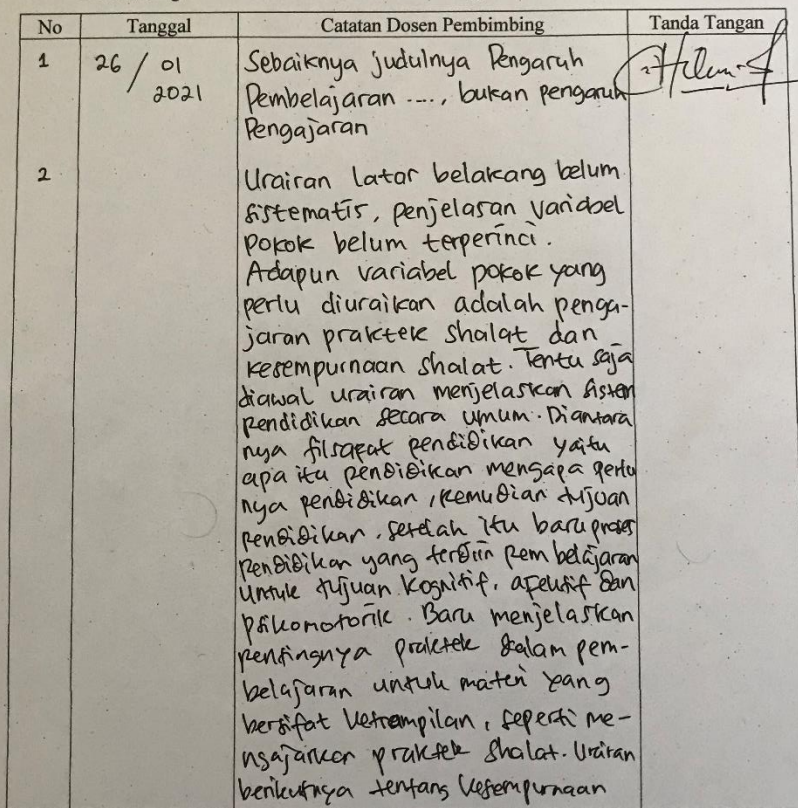 No Tanggal Catatan Dosen Pembimbing Tanda Tangan
1 26 / 01 Sebaiknya judulnya Pengaruh
2021 Pembelajaran ...., bukan pengaruh
Pengajaran
2 Uraian latar belakang belum
sistematis, penjelasan variabel
pokok belum terperinci.
Adapun variabel pokok yang
perlu diuraikan adalah penga-
jaran praktek shalat dan
kesempurnaan shalat. Tentu saja
diawal uraian menjelaskan sistem
pendidikan secara umum. Diantara
nya filsafat pendidikan yaitu
apa itu pendidikan mengapa perlu
nya pendidikan, kemudian tujuan
pendidikan, setelah itu baru proses
pendidikan yang terdiri pembelajaran
untuk tujuan kognitif, afektif dan
psikomotorik. Baru menjelaskan
pentingnya praktek dalam pem-
belajaran untuk materi yang
bersifat ketrampilan, seperti me-
ngajarkan praktek shalat. Uraian
berikutnya tentang kesempurnaan